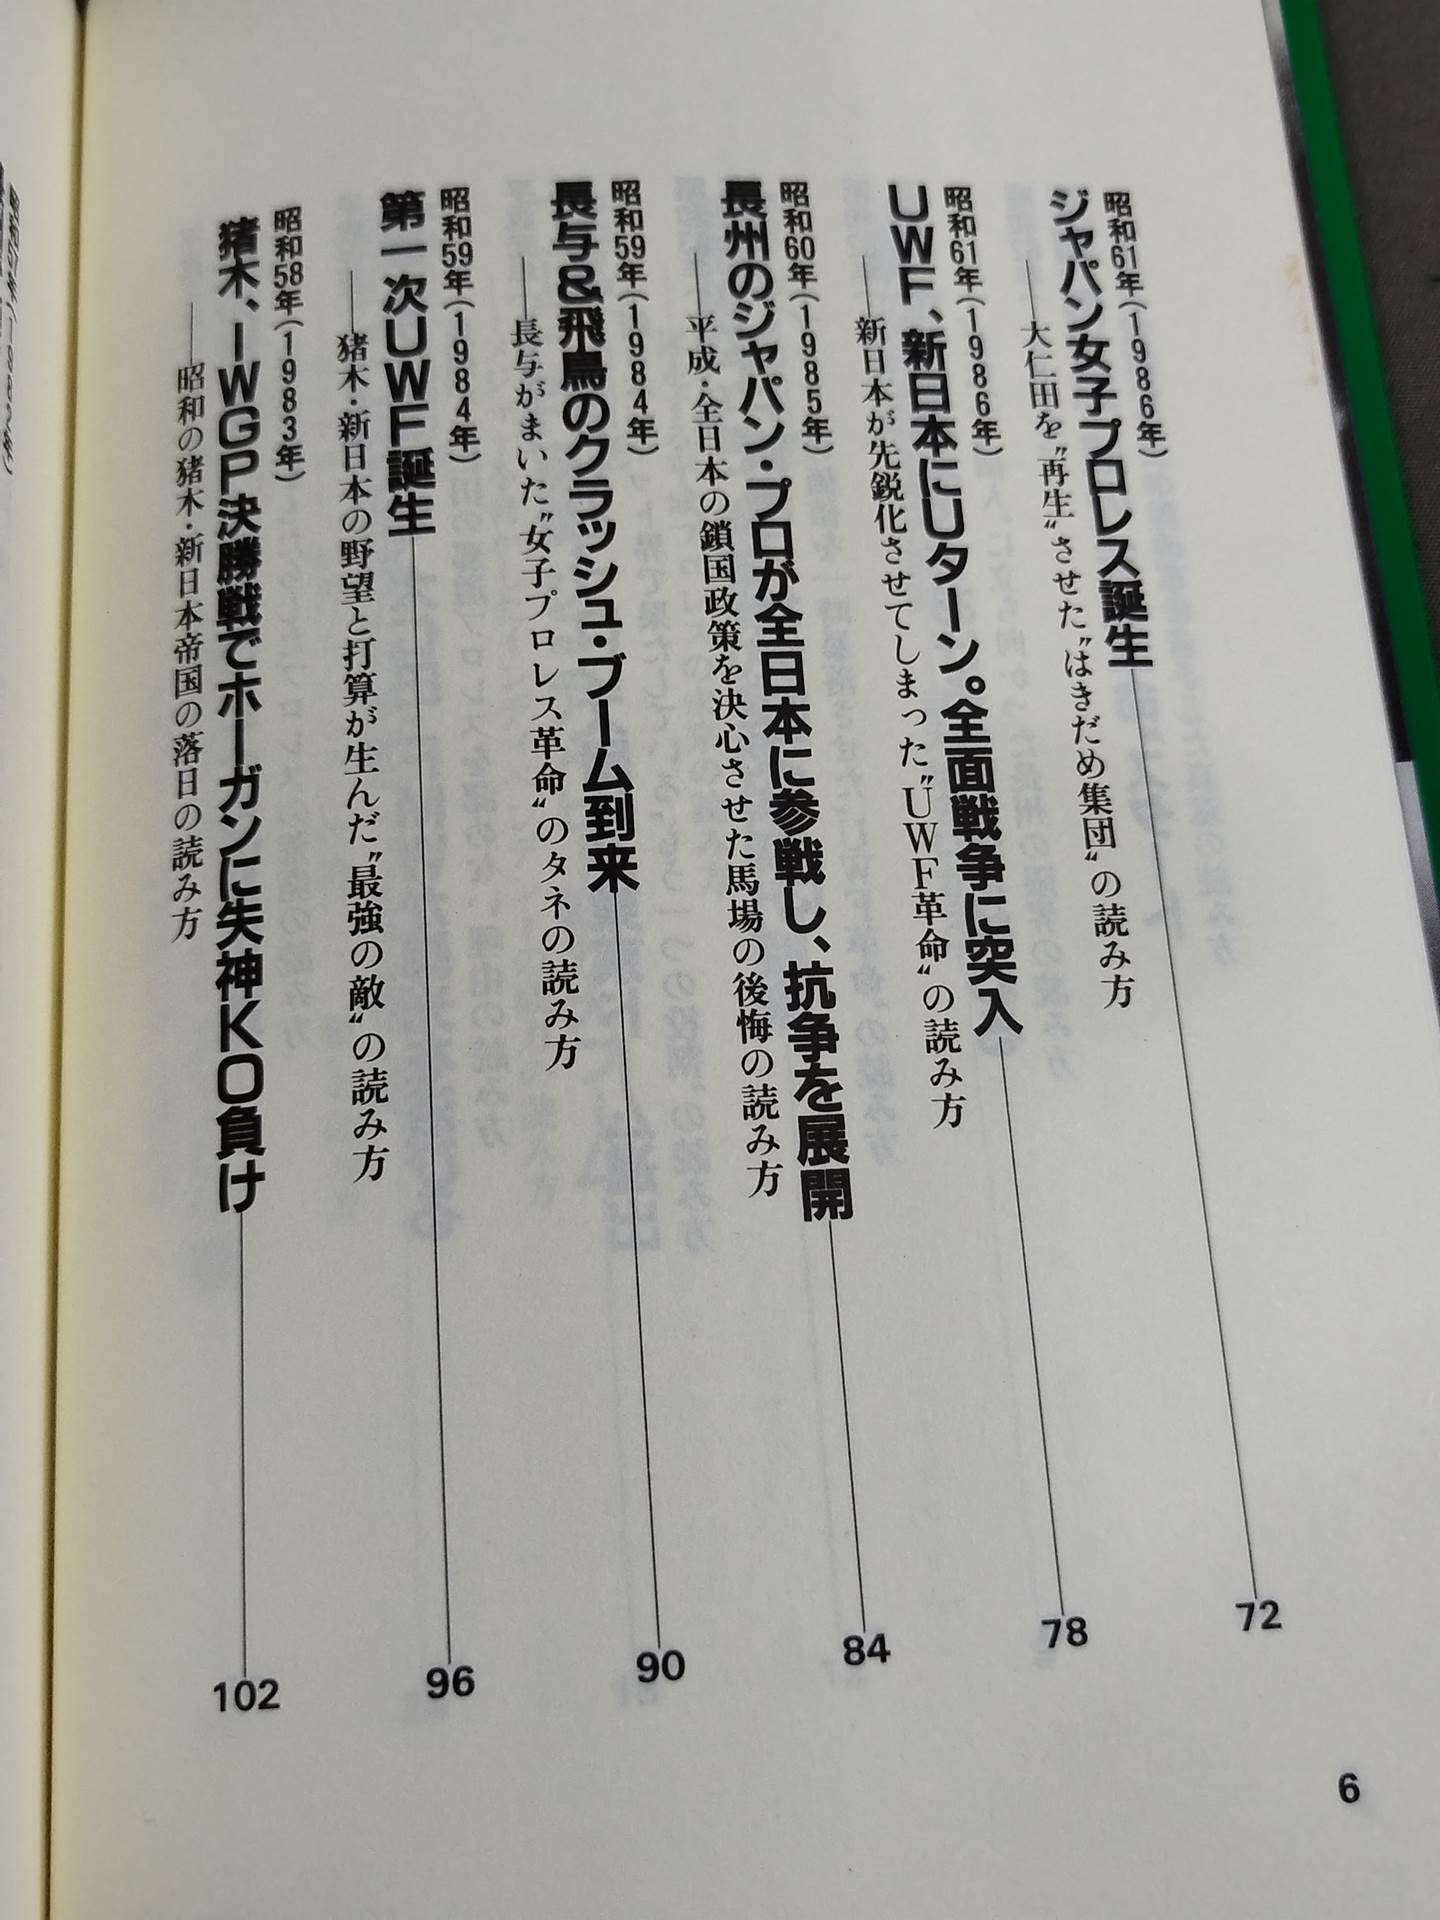 昭和61年（1986年）
ジャパン女子プロレス誕生
72
――大仁田を〝再生〟させた〝はきだめ集団〟の読み方
昭和61年（1986年）
UWF、新日本にUターン。全面戦争に突入
78
――新日本が先鋭化させてしまった〝UWF革命〟の読み方
昭和60年（1985年）
長州のジャパン・プロが全日本に参戦し、抗争を展開
84
――平成・全日本の鎖国政策を決心させた馬場の後悔の読み方
昭和59年（1984年）
長与＆飛鳥のクラッシュ・ブーム到来
90
――長与がまいた〝女子プロレス革命〟のタネの読み方
昭和59年（1984年）
第一次UWF誕生
96
――猪木・新日本の野望と打算が生んだ〝最強の敵〟の読み方
昭和58年（1983年）
猪木、IWGP決勝戦でホーガンに失神KO負け
102
――昭和の猪木・新日本帝国の落日の読み方
6